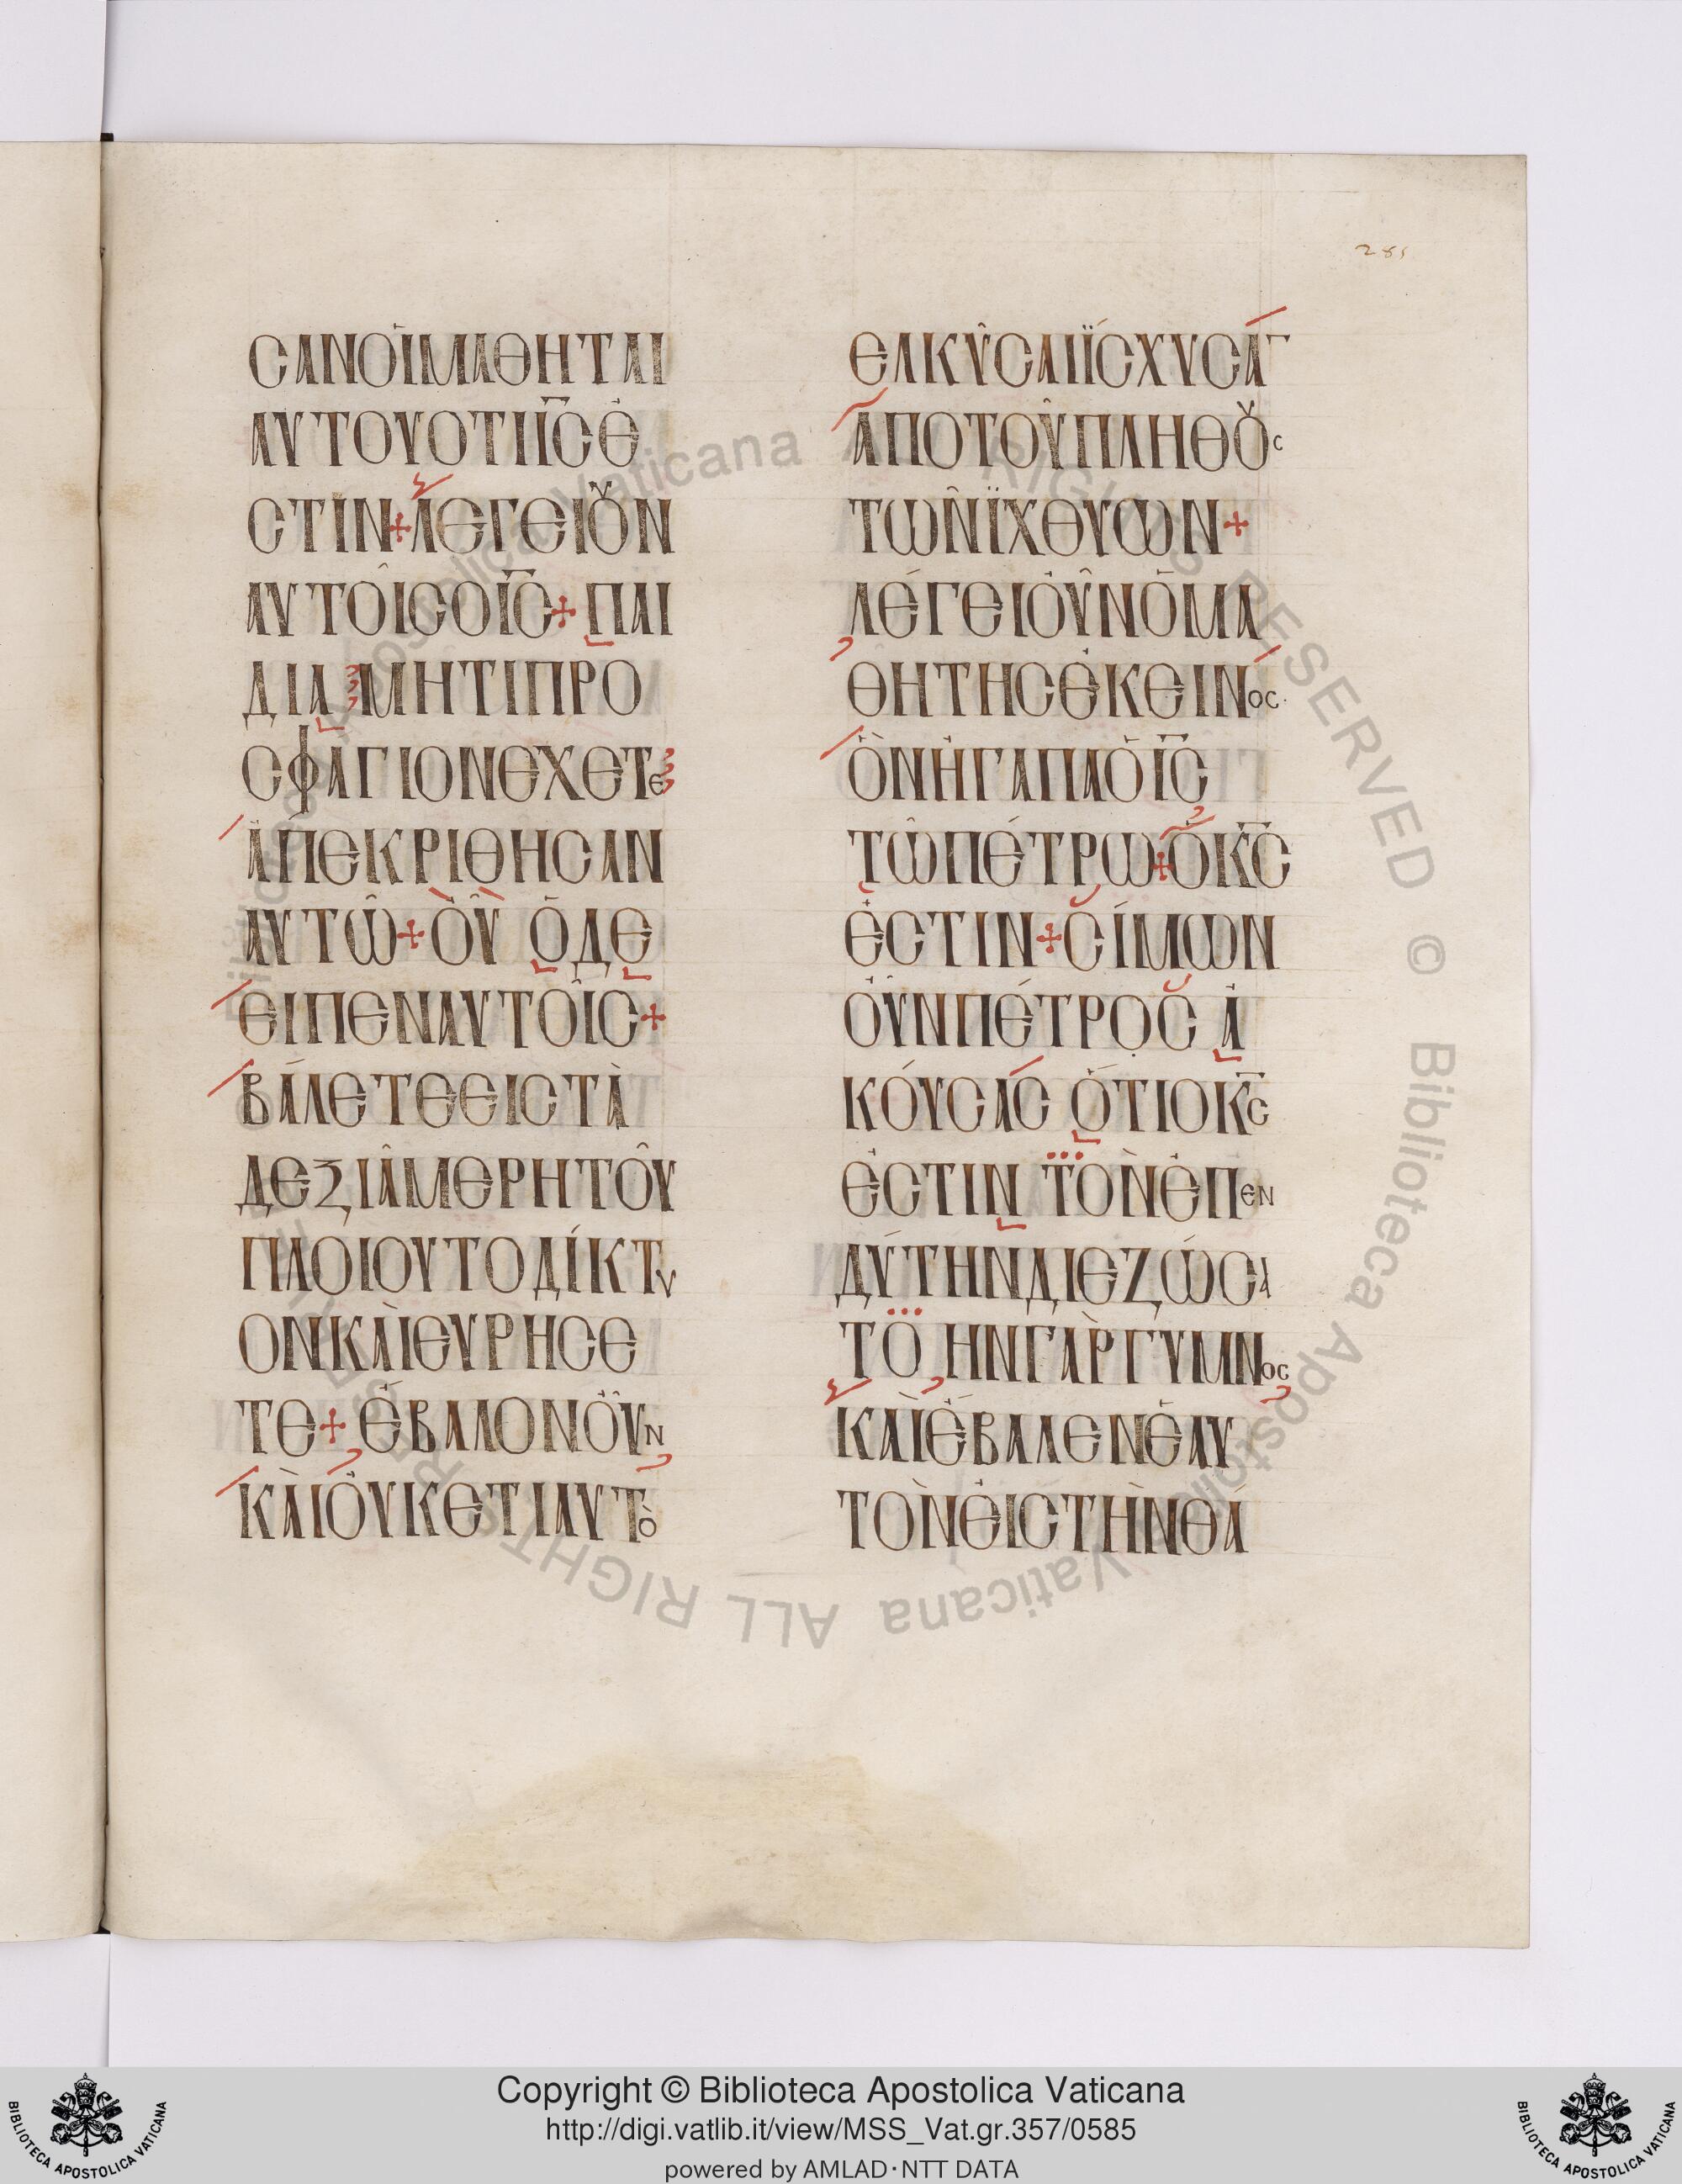 285
ϹΑΝΟΙΜΑΘΗΤΑΙ
ΑΥΤΟΥΟΤΙΙ̅Ϲ̅Ε
ϹΤΙΝ+ΛΕΓΕΙΟΥΝ
ΑΥΤΟΙϹΟΙ̅Ϲ̅+ΠΑΙ
ΔΙΑ ΜΗΤΙΠΡΟ
ϹΦΑΓΙΟΝΕΧΕΤΕ
ΑΠΕΚΡΙΘΗϹΑΝ
ΑΥΤΩ+ΟΥ ΟΔΕ
ΕΙΠΕΝΑΥΤΟΙϹ+
ΒΑΛΕΤΕΕΙϹΤΑ
ΔΕΞΙΑΜΕΡΗΤΟΥ
ΠΛΟΙΟΥΤΟΔΙΚΤΥ
ΟΝΚΑΙΕΥΡΗϹΕ
ΤΕ+ΕΒΑΛΟΝΟΥΝ
ΚΑΙΟΥΚΕΤΙΑΥΤΟ
ΕΛΚΥϹΑΙΪϹΧΥϹΑΝ
ΑΠΟΤΟΥΠΛΗΘΟΥϹ
ΤΩΝΪΧΘΥΩΝ+
ΛΕΓΕΙΟΥΝΟΜΑ
ΘΗΤΗϹΕΚΕΙΝΟϹ
ΟΝΗΓΑΠΑΟΙ̅Ϲ̅
ΤΩΠΕΤΡΩ+ΟΚ̅Ϲ̅
ΕϹΤΙΝ+ϹΙΜΩΝ
ΟΥΝΠΕΤΡΟϹ Α
ΚΟΥϹΑϹ ΟΤΙΟΚ̅Ϲ̅
ΕϹΤΙΝ ΤΟΝΕΠΕΝ
ΔΥΤΗΝΔΙΕΖΩϹΑ
ΤΟ ΗΝΓΑΡΓΥΜΝΟϹ
ΚΑΙΕΒΑΛΕΝΕΑΥ
ΤΟΝΕΙϹΤΗΝΘΑ
Biblioteca Apostolica Vaticana ALL RIGHTS RESERVED © Biblioteca Apostolica Vaticana ALL RIGHTS RESERVED
Copyright © Biblioteca Apostolica Vaticana
http://digi.vatlib.it/view/MSS_Vat.gr.357/0585
powered by AMLAD·NTT DATA
BIBLIOTECA APOSTOLICA VATICANA
BIBLIOTECA APOSTOLICA VATICANA